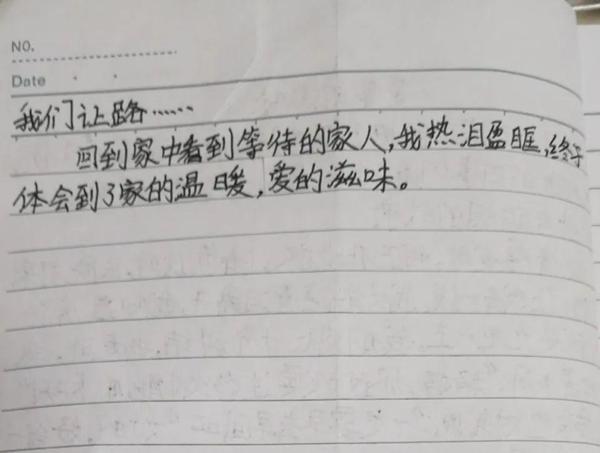 NO.
Date
我们让路……
回到家中看到等待的家人,我热泪盈眶,终于
体会到了家的温暖,爱的滋味。